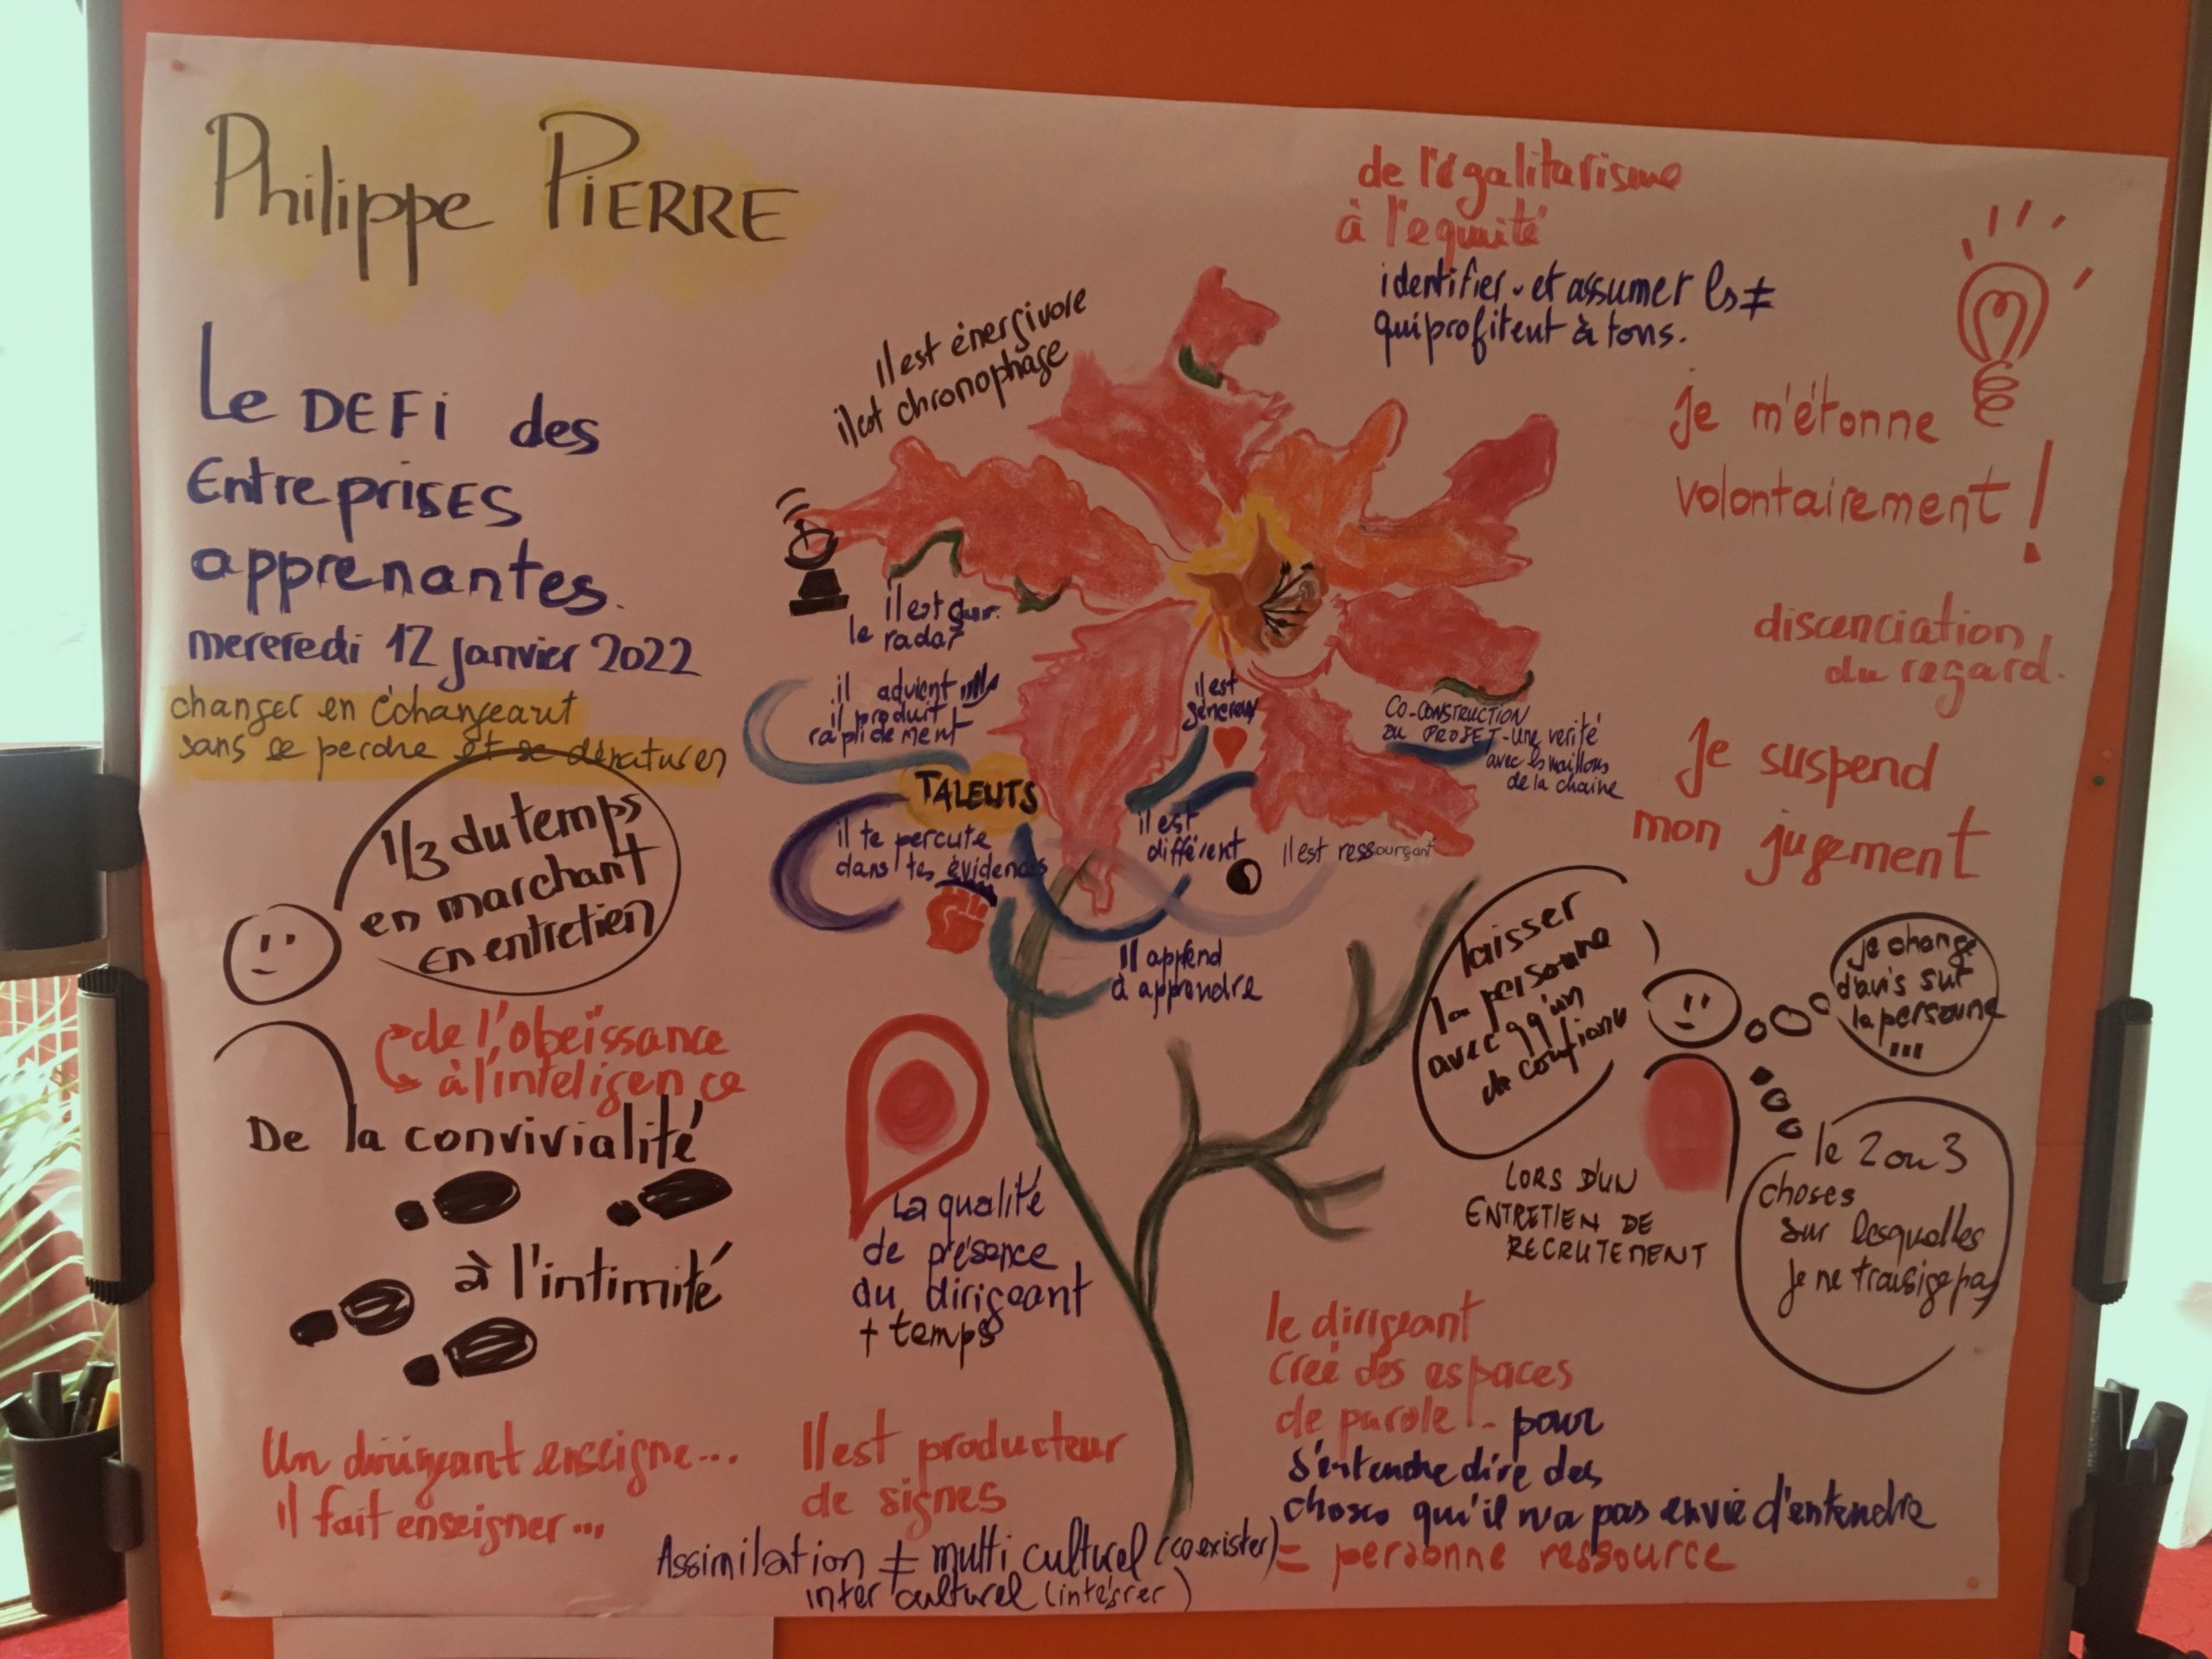 Philippe PIERRE
Le DEFI des
Entreprises
apprenantes.
mereredi 12 janvier 2022
changer en échangeant
sans se perdre et se dénaturer
1/3 du temps
en marchant
en entretien
de l'obeïssance
à l'inteligence
De la convivialité
à l'intimité
Un dirigeant enseigne...
il fait enseigner...
il est énergivore
il est chronophage
il est sur
le radar
il advient
il produit
rapidement
TALENTS
il te percute
dans tes évidences
il est
généreux
il est
différent
il est ressourçant
Il apprend
à apprendre
CO-CONSTRUCTION
DU PROJET - une verité
avec les maillons
de la chaine
La qualité
de présence
du dirigeant
+ temps
Il est producteur
de signes
Assimilation ≠ multi culturel (coexister)
inter culturel (intégrer)
de l'égalitarisme
à l'equité
identifier et assumer les ≠
qui profitent à tous.
je m'étonne
volontairement !
discenciation
du regard.
Je suspend
mon jugement
laisser
la personne
avec qq'un
de confiance
je change
d'avis sur
la personne
...
le 2 ou 3
choses
sur lesquelles
je ne transige pas
LORS D'UN
ENTRETIEN DE
RECRUTEMENT
le dirigeant
creé des espaces
de parole !.. pour
s'entendre dire des
choses qu'il n'a pas envie d'entendre
= personne ressource